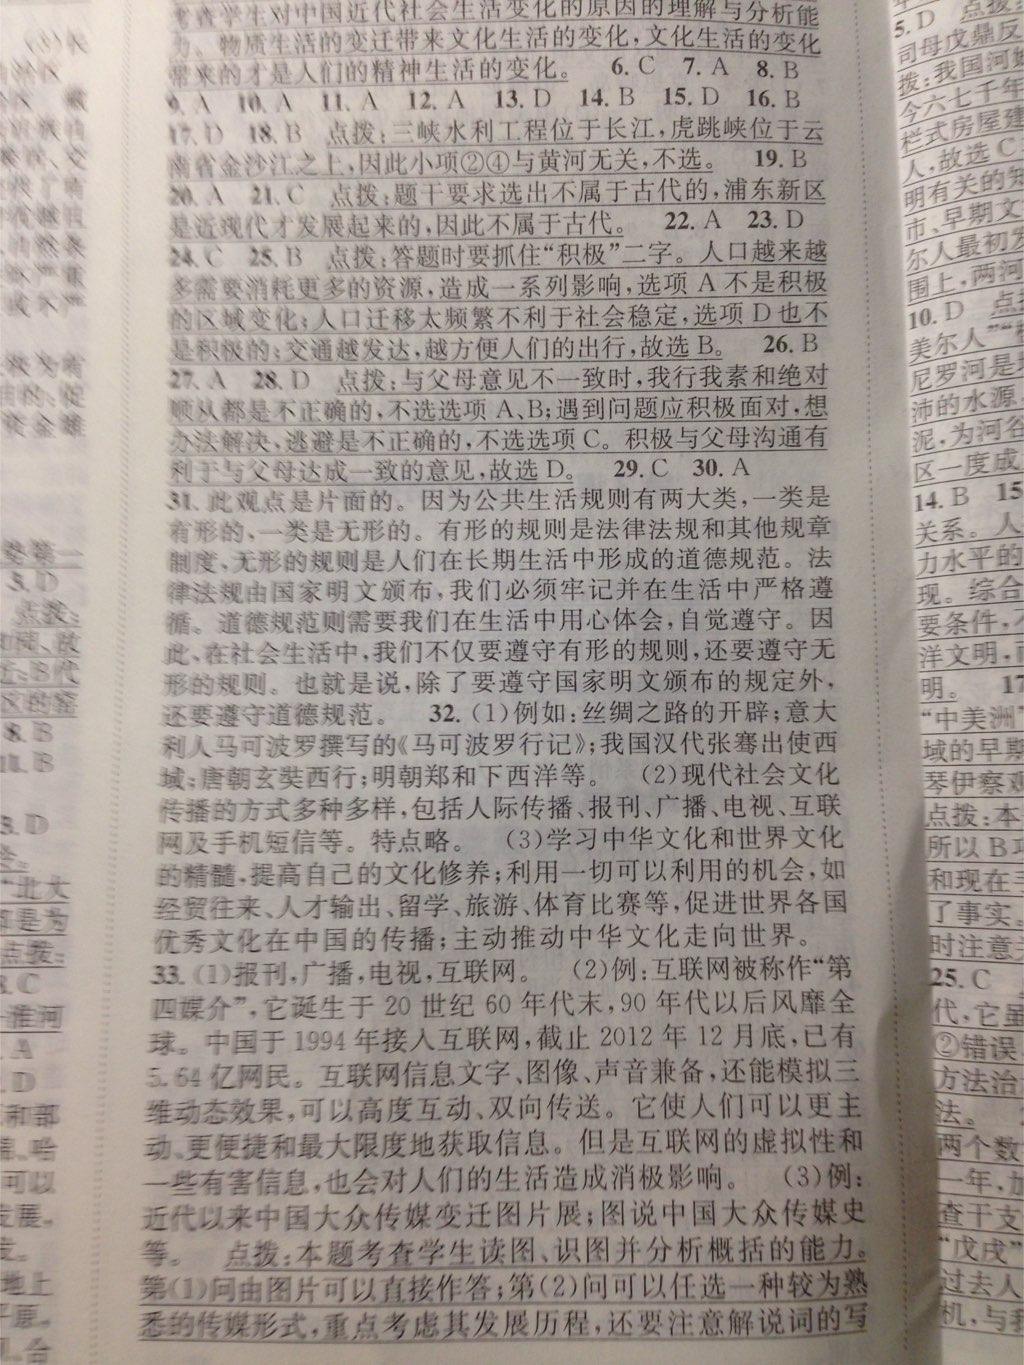 考查学生对中国近代社会生活变化的原因的理解与分析能
力。物质生活的变迁带来文化生活的变化,文化生活的变化
带来的才是人们的精神生活的变化。 6. C 7. A 8. B
9. A 10. A 11. A 12. A 13. D 14. B 15. D 16. B
17. D 18. B 点拨:三峡水利工程位于长江,虎跳峡位于云
南省金沙江之上,因此小项②④与黄河无关,不选。 19. B
20. A 21. C 点拨:题干要求选出不属于古代的,浦东新区
是近现代才发展起来的,因此不属于古代。 22. A 23. D
24. C 25. B 点拨:答题时要抓住“积极”二字。人口越来越
多需要消耗更多的资源,造成一系列影响,选项 A 不是积极
的区域变化;人口迁移太频繁不利于社会稳定,选项 D 也不
是积极的;交通越发达,越方便人们的出行,故选 B。 26. B
27. A 28. D 点拨:与父母意见不一致时,我行我素和绝对
顺从都是不正确的,不选选项 A、B;遇到问题应积极面对,想
办法解决,逃避是不正确的,不选选项 C。积极与父母沟通有
利于与父母达成一致的意见,故选 D。 29. C 30. A
31. 此观点是片面的。因为公共生活规则有两大类,一类是
有形的、一类是无形的。有形的规则是法律法规和其他规章
制度、无形的规则是人们在长期生活中形成的道德规范。法
律法规由国家明文颁布,我们必须牢记并在生活中严格遵
循。道德规范则需要我们在生活中用心体会,自觉遵守。因
此、在社会生活中,我们不仅要遵守有形的规则,还要遵守无
形的规则。也就是说,除了要遵守国家明文颁布的规定外,
还要遵守道德规范。 32. (1)例如:丝绸之路的开辟;意大
利人马可波罗撰写的《马可波罗行记》;我国汉代张骞出使西
域;唐朝玄奘西行;明朝郑和下西洋等。 (2)现代社会文化
传播的方式多种多样,包括人际传播、报刊、广播、电视、互联
网及手机短信等。特点略。 (3)学习中华文化和世界文化
的精髓,提高自己的文化修养;利用一切可以利用的机会,如
经贸往来、人才输出、留学、旅游、体育比赛等,促进世界各国
优秀文化在中国的传播;主动推动中华文化走向世界。
33. (1)报刊,广播,电视,互联网。 (2)例:互联网被称作“第
四媒介”,它诞生于 20 世纪 60 年代末,90 年代以后风靡全
球。中国于 1994 年接人互联网,截止 2012 年 12 月底,已有
5.64 亿网民。互联网信息文字、图像、声音兼备,还能模拟三
维动态效果,可以高度互动、双向传送。它使人们可以更主
动、更便捷和最大限度地获取信息。但是互联网的虚拟性和
一些有害信息,也会对人们的生活造成消极影响。 (3)例:
近代以来中国大众传媒变迁图片展;图说中国大众传媒史
等。 点拨:本题考查学生读图、识图并分析概括的能力。
第(1)问由图片可以直接作答;第(2)问可以任选一种较为熟
悉的传媒形式,重点考虑其发展历程,还要注意解说词的写
5. D 点拨:
司母戊鼎反
拨:我国河姆
今六七千年
栏式房屋建
人,故选 C
明有关的知
市、早期文
尔人最初发
围上,两河
10. D 点
美尔人”“
尼罗河是
沛的水源
泥,为河谷
区一度成
14. B 15
关系。人
力水平的
现。综合
要条件,
洋文明,
明。 17
“中美洲”
域的早期
琴伊察观
点拨:本
所以 B 项
和现在手
了事实。
时注意
25. C
代,它虽
②错误
方法治
法。
两个数
一年,加
查干支
“戊戌”
过去人
机,与我